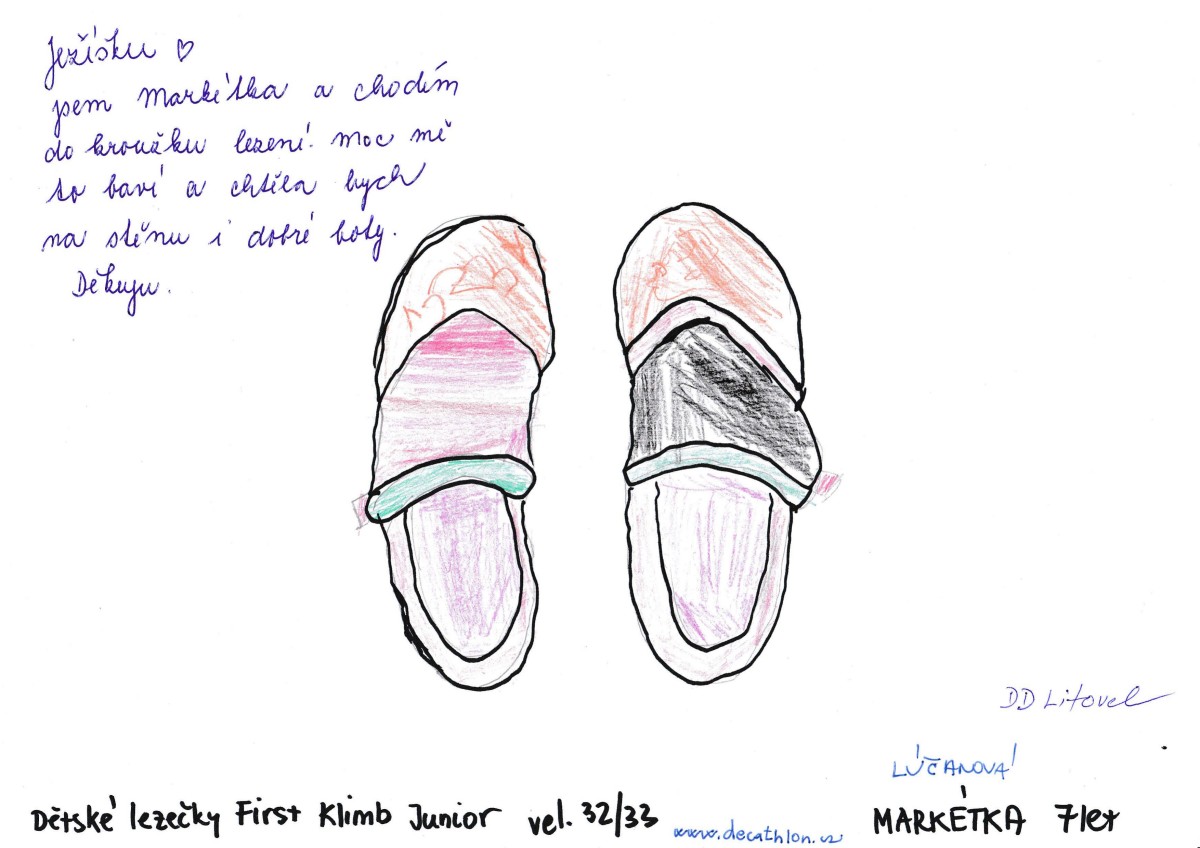 Ježíšku ♡
jsem Markétka a chodím
do kroužku lezení. moc mě
to baví a chtěla bych
na stěnu i dobré boty.
Děkuju.
DD Litovel
LÚČANOVÁ
Dětské lezečky First Klimb Junior vel. 32/33 www.decathlon.cz MARKÉTKA 7let